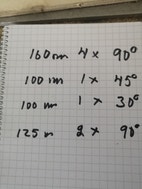 160 cm 4 x 90°
100 cm 1 x 45°
100 cm 1 x 30°
125 m 2 x 90°